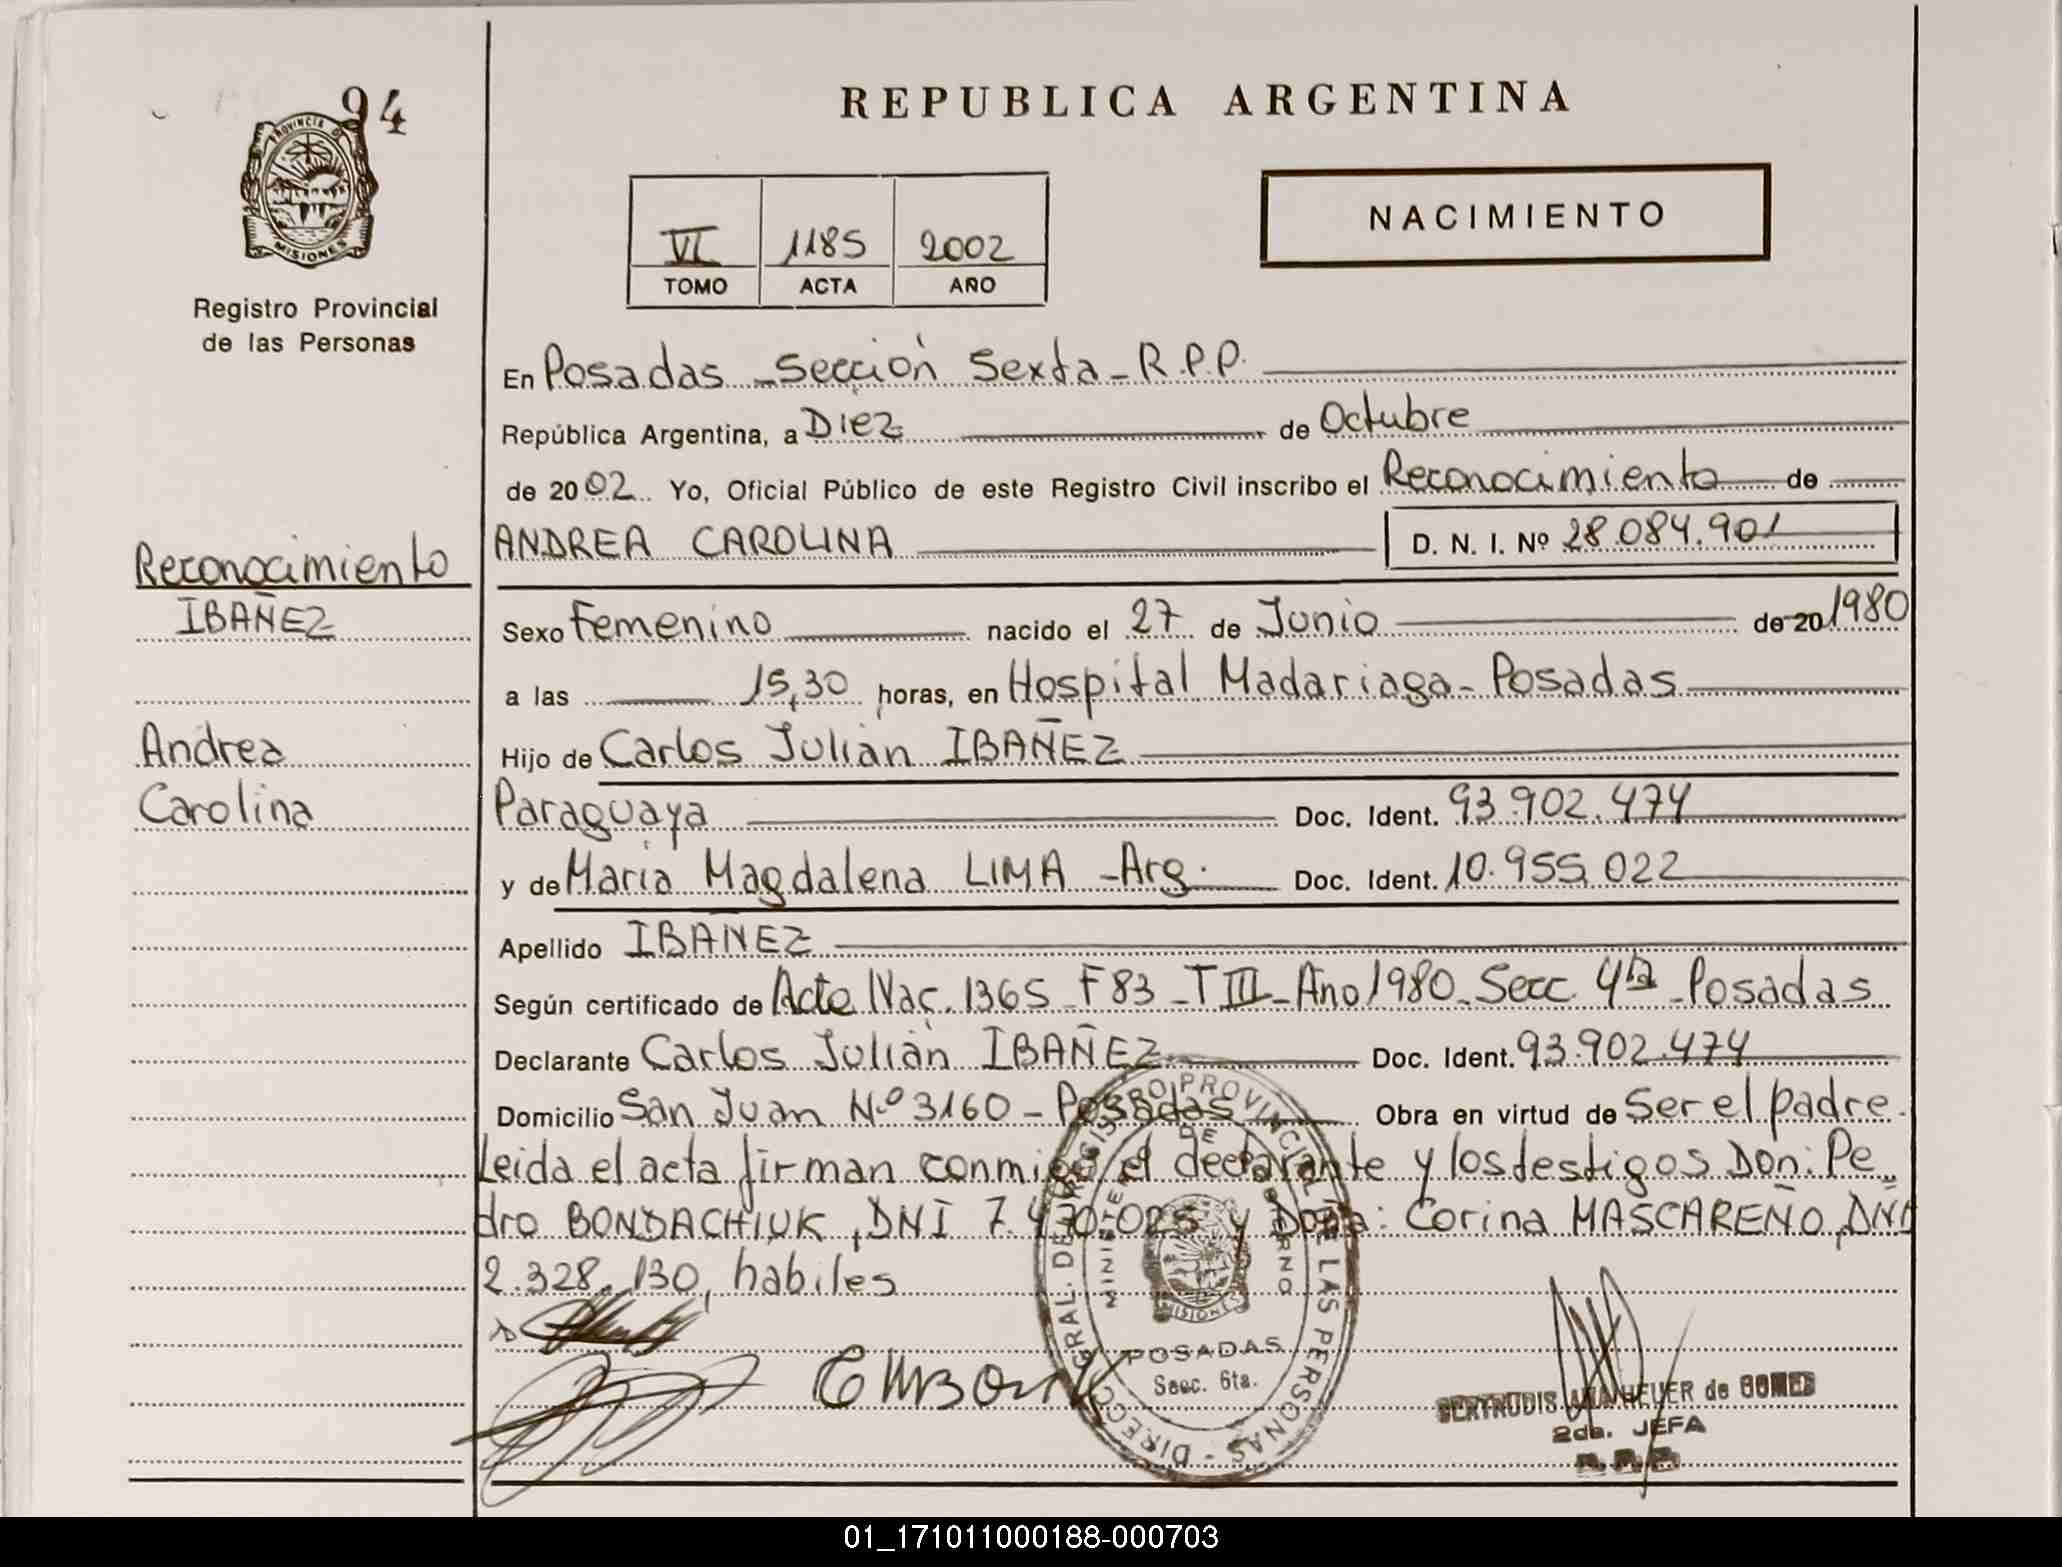 94
PROVINCIA DE
MISIONES
Registro Provincial
de las Personas
REPUBLICA ARGENTINA
VI 1185 2002
TOMO ACTA AÑO
NACIMIENTO
En Posadas - Sección Sexta - R.P.P.
República Argentina, a Diez de Octubre
de 2002. Yo, Oficial Público de este Registro Civil inscribo el Reconocimiento de
ANDREA CAROLINA D. N. I. Nº 28.084.901
Reconocimiento
IBAÑEZ
Andrea
Carolina
Sexo Femenino nacido el 27 de Junio de 20 1980
a las 15,30 horas, en Hospital Madariaga - Posadas
Hijo de Carlos Julian IBAÑEZ
Paraguaya Doc. Ident. 93.902.474
y de Maria Magdalena LIMA - Arg. Doc. Ident. 10.955.022
Apellido IBAÑEZ
Según certificado de Acta Nac. 1365 - F 83 - T III - Año 1980 - Secc. 4ta - Posadas
Declarante Carlos Julián IBAÑEZ Doc. Ident. 93.902.474
Domicilio San Juan Nº 3160 - Posadas Obra en virtud de Ser el padre.
Leida el acta firman conmigo el declarante y los testigos Don: Pe=
dro BONDACHIUK, DNI 7.470.025 y Doña: Corina MASCAREÑO, DNI
2.328.130, habiles
DIRECC. GRAL. DEL REGISTRO PROVINCIAL DE LAS PERSONAS
MINISTERIO DE GOBIERNO
MISIONES
POSADAS
Secc. 6ta.
GERTRUDIS ANA HEUER de GOMES
2da. JEFA
R.P.P.
01_171011000188-000703